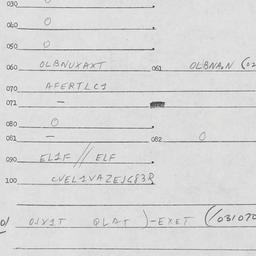 030 0
040 0
050 0
060 OLBNUXAXT 061 OLBNAN (02
070 AFERTLC1
071 -
080 0
081 - 082 0
090 EL1F // ELF
100 CVEL1VAZEJG83R
0/ OJX1T QLAT )-EXET (/03107